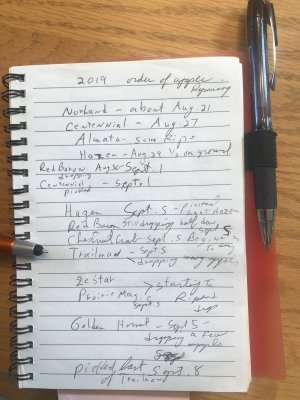 2019 order of apple
Ripening
Norland - about Aug. 21
Centennial - Aug. 27
Almata - some Ripe
Hazen - Aug. 29 1/2 on ground
Red Baron Aug 31 Sept. 1
dropping
Centennial - Sept. 1
picked
Hazen Sept. 5 - picked
Last Hazen
Red Baron Still dropping
Sept 5
Chestnut Crab - Sept. 5
Trailman - Sept. 5
dropping many apples
Zestar
Prairie Mag. starting to
Sept. 5 Ripen
Golden Hornet - Sept 5 -
dropping a few
apples
picked last Sept. 8
of Trailman